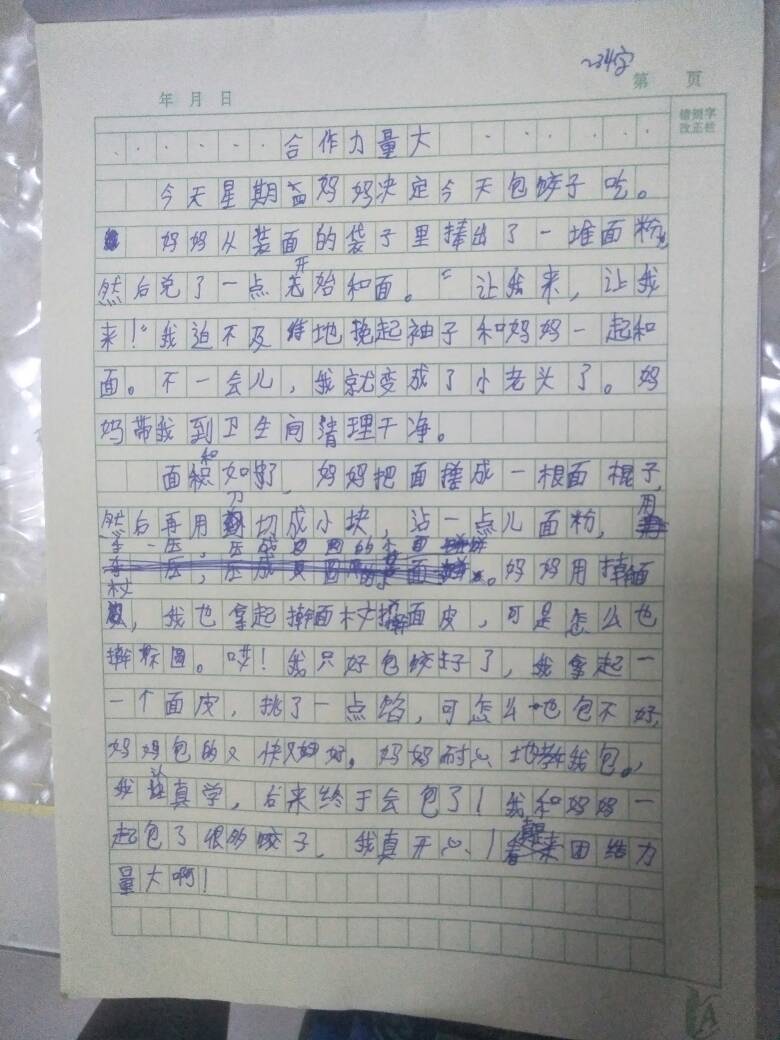 ~234字
第 页
年 月 日
错别字
改正栏
合作力量大
今天星期 妈妈决定今天包饺子吃。
妈妈从装面的袋子里捧出了一堆面粉,
然后兑了一点 开始和面。“让我来,让我
来!”我迫不及待地挽起袖子和妈妈一起和
面。不一会儿,我就变成了小老头了。妈
妈带我到卫生间清理干净。
面和好了,妈妈把面搓成一根面棍子,
然后再用刀切成小块,沾一点儿面粉,用
手一压,压成 圆的小面
。妈妈用擀面
杖,我也拿起擀面杖擀面皮,可是怎么也
擀不圆。哎!我只好包饺子了,我拿起一
一个面皮,挑了一点馅,可怎么也包不好,
妈妈包的又快又好。妈妈耐心地教我包。
我认真学,后来终于会包了!我和妈妈一
起包了很多饺子,我真开心!看来团结力
量大啊!